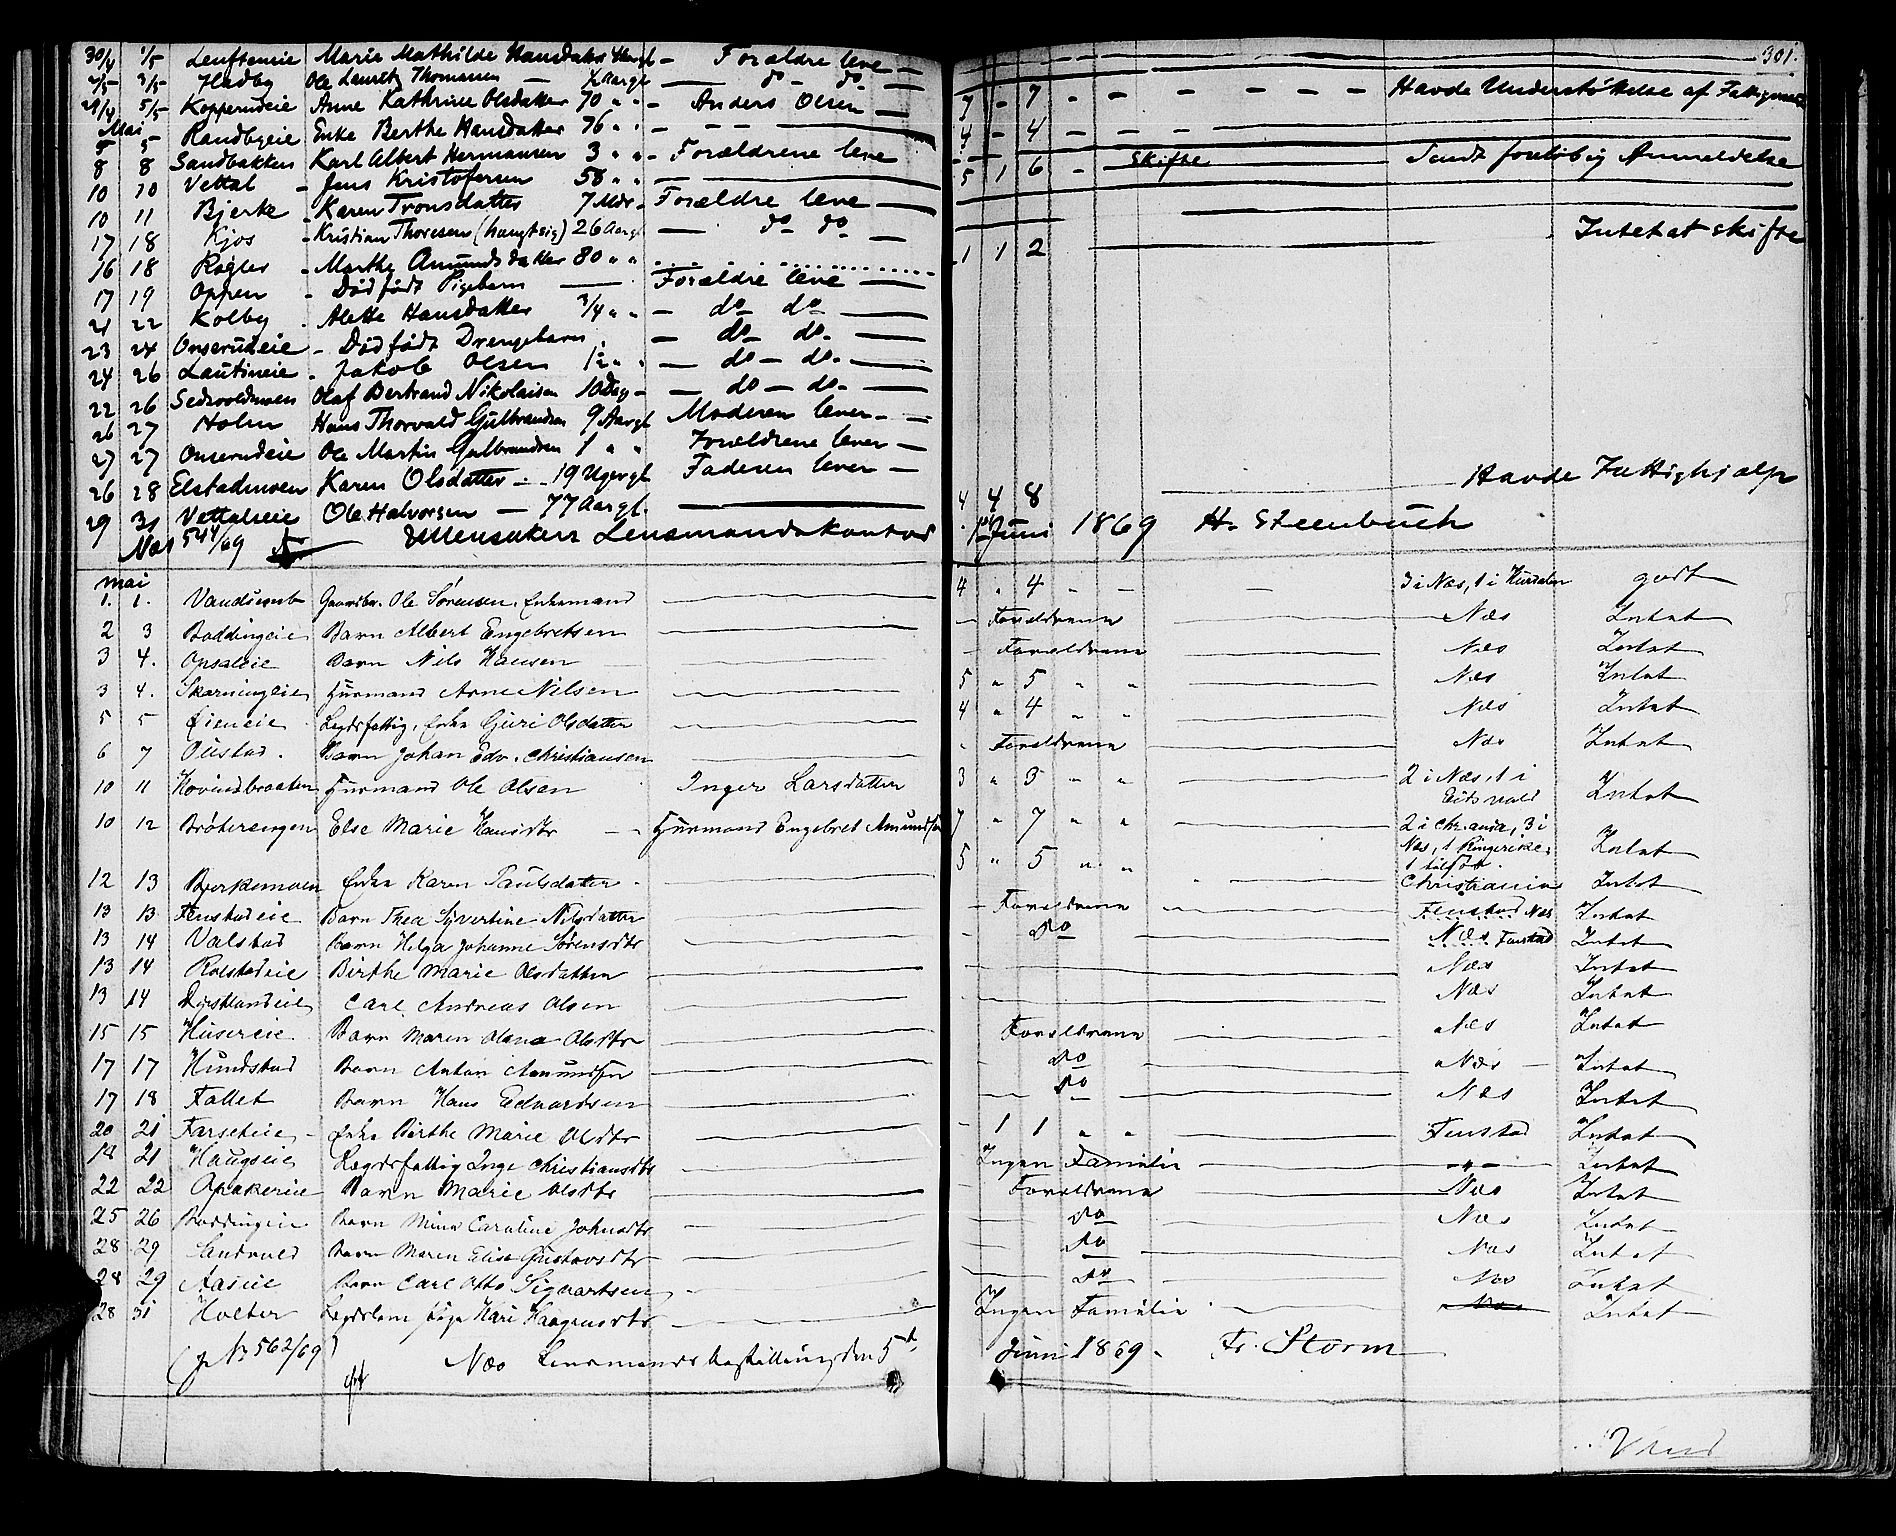 301.
30/4 1/5 Marie Mathilde Hansdatter Forældre leve —
2/5 3/5 Hadby Ole Lauritz Thomasen — do — do —
29/4 5/5 Kopperudeie Anne Kathrine Olsdatter 70 " " — Anders Olsen — 7 - 7 - - - - - - Havde Understöttelse af
Mai
5 5 Randbyeie Enke Berthe Hansdatter 76 " " — 4 - 4 - - - -
8 8 Sandbakken Karl Albert Hermansen 3 " " — Forældrene leve
10 10 Vettal - Jens Kristofersen 58 " " — 5 1 6 - Skifte Sendt forelöbig Anmeldelse
10 11 Bjerke - Karen Tronsdatter 7 Mdr - Forældre leve —
17 18 Kjos - Kristian Thoresen 26 Aargl — do do —
16 18 Rögler - Marthe Amundsdatter 80 " " 1 1 2 Intet at skifte
17 19 Oppen - Dödfödt Pigebarn — Forældre leve —
21 22 Kolby - Alette Hansdatter 3/4 " " — do do —
23 24 Onserudeie - Dödfödt Drengebarn — do do —
24 26 Lautineie - Jakob Olsen 1/2 " " — do — do —
22 26 Olaf Bertrand Nikolaisen 10 Dag — — do — do —
26 27 Holm Hans Thorvald Gulbrandsen 9 Aargl Moderen lever —
27 27 Onserudeie Ole Martin Gulbrandsen 1 " " Forældrene lever —
26 28 Elstadmoen Karen Olsdatter — 19 Ugergl Faderen lever —
29 31 Vettaleie Ole Halvorsen — 77 Aargl. 4 4 8 Havde Fattighjælp
No 544/69 Ullensakers Lensmandskontor Juni 1869 H. Steenbuch
Mai
1. 1. Ole Sörensen, Enkemand 4 " 4 " - 3 i Næs, 1 i Hurdalen godt
2 3 Boddingeie Barn Albert Engebretsen Forældrene Næs Intet
3 4. Opsaleie Barn Nils Hansen Forældrene Næs Intet
3 4. Skarningeie Huusmand Arne Nilsen 5 " 5 " " Næs Intet
5 5 Lieneie Lægdsfattig, Enke Guri Olsdatter 4 " 4 " " Næs Intet
6 7 Oustad. Barn Johan Edv. Christiansen Forældrene Næs Intet
10 11 Hovindbraaten Huusmand Ole Olsen Inger Larsdatter 3 " 3 " " 2 i Næs, 1 i Eidsvold Intet
10 12 Bröterengen Else Marie Hansdtr Huusmand Engebret Amundsen 7 " 7 " " 2 i Chr.ania, 3 i Næs, 1 Ringerike, Intet
12 13 Bjerkemoen Enke Karen Paulsdatter 5 " 5 " " Christiania Intet
13 13 Fenstadeie Barn Thea Syvertine Nilsdatter Forældrene Fenstad Næs Intet
13 14 Valstad Barn Helga Johanne Sörensdtr Do Næs Fenstad Intet
13 14 Rolstadeie Birthe Marie Olsdatter Næs Intet
13 14 Carl Andreas Olsen Næs Intet
15 15 Husereie Barn Maren Olava Olsdtr Forældrene Næs Intet
17 17 Hundstad Barn Anton Amundsen Do Næs Intet
17 18 Fallet Barn Hans Edvardsen Do Næs Intet
20 21 Enke Birthe Marie Olsdtr 1 1 " " Fenstad Intet
18 21 Haugseie Lægdsfattig Inge Christiansdtr Ingen Familie - " - Intet
22 22 Opakereie Barn Marie Olsdtr Forældrene Næs Intet
25 26 Boddingeie Barn Mina Caroline Johnsdtr Do Næs Intet
28 29 Sandvold Barn Maren Elise Gustavsdtr Do Næs Intet
28 29 Aaseie Barn Carl Otto Sigvartsen Do Næs Intet
28 31 Holter Lægdslem Pige Kari Haagensdtr Ingen Familie Intet
(J No 562/69) Næs Lensmandsbestilling den 5te Juni 1869. Fr. Storm